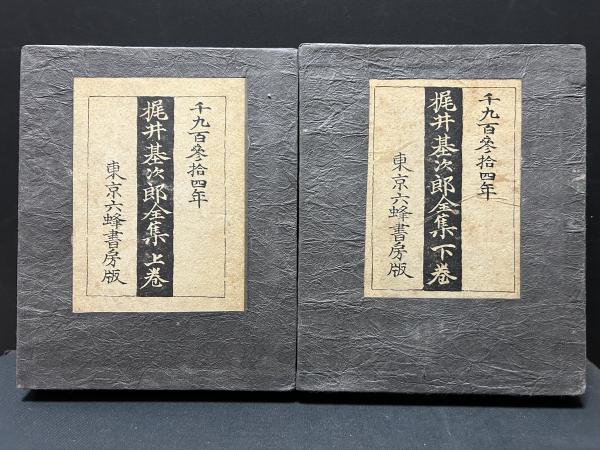 千九百參拾四年
梶井基次郎全集 上卷
東京六蜂書房版
千九百參拾四年
梶井基次郎全集 下卷
東京六蜂書房版